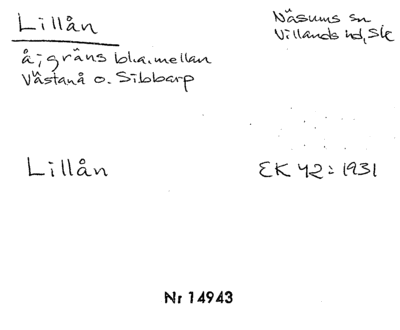 Lillån
Näsums sn
Villands hd, Sk
å; gräns bl.a. mellan
Västanå o. Sibbarp
Lillån
EK 42: 1931
Nr 14943